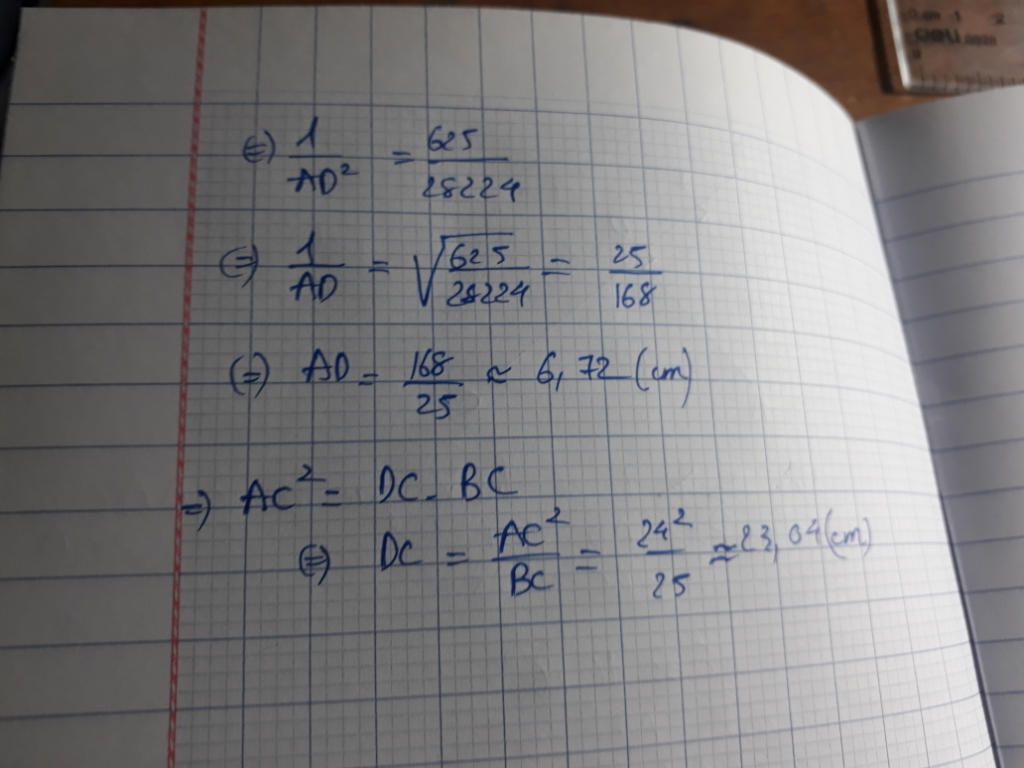 ⇔) 1/AD² = 625/28224
⇔) 1/AD = √(625/28224) = 25/168
(⇔) AD = 168/25 ≈ 6,72 (cm)
⇒) AC² = DC. BC
⇔) DC = AC²/BC = 24²/25 ≈ 23,04 (cm)